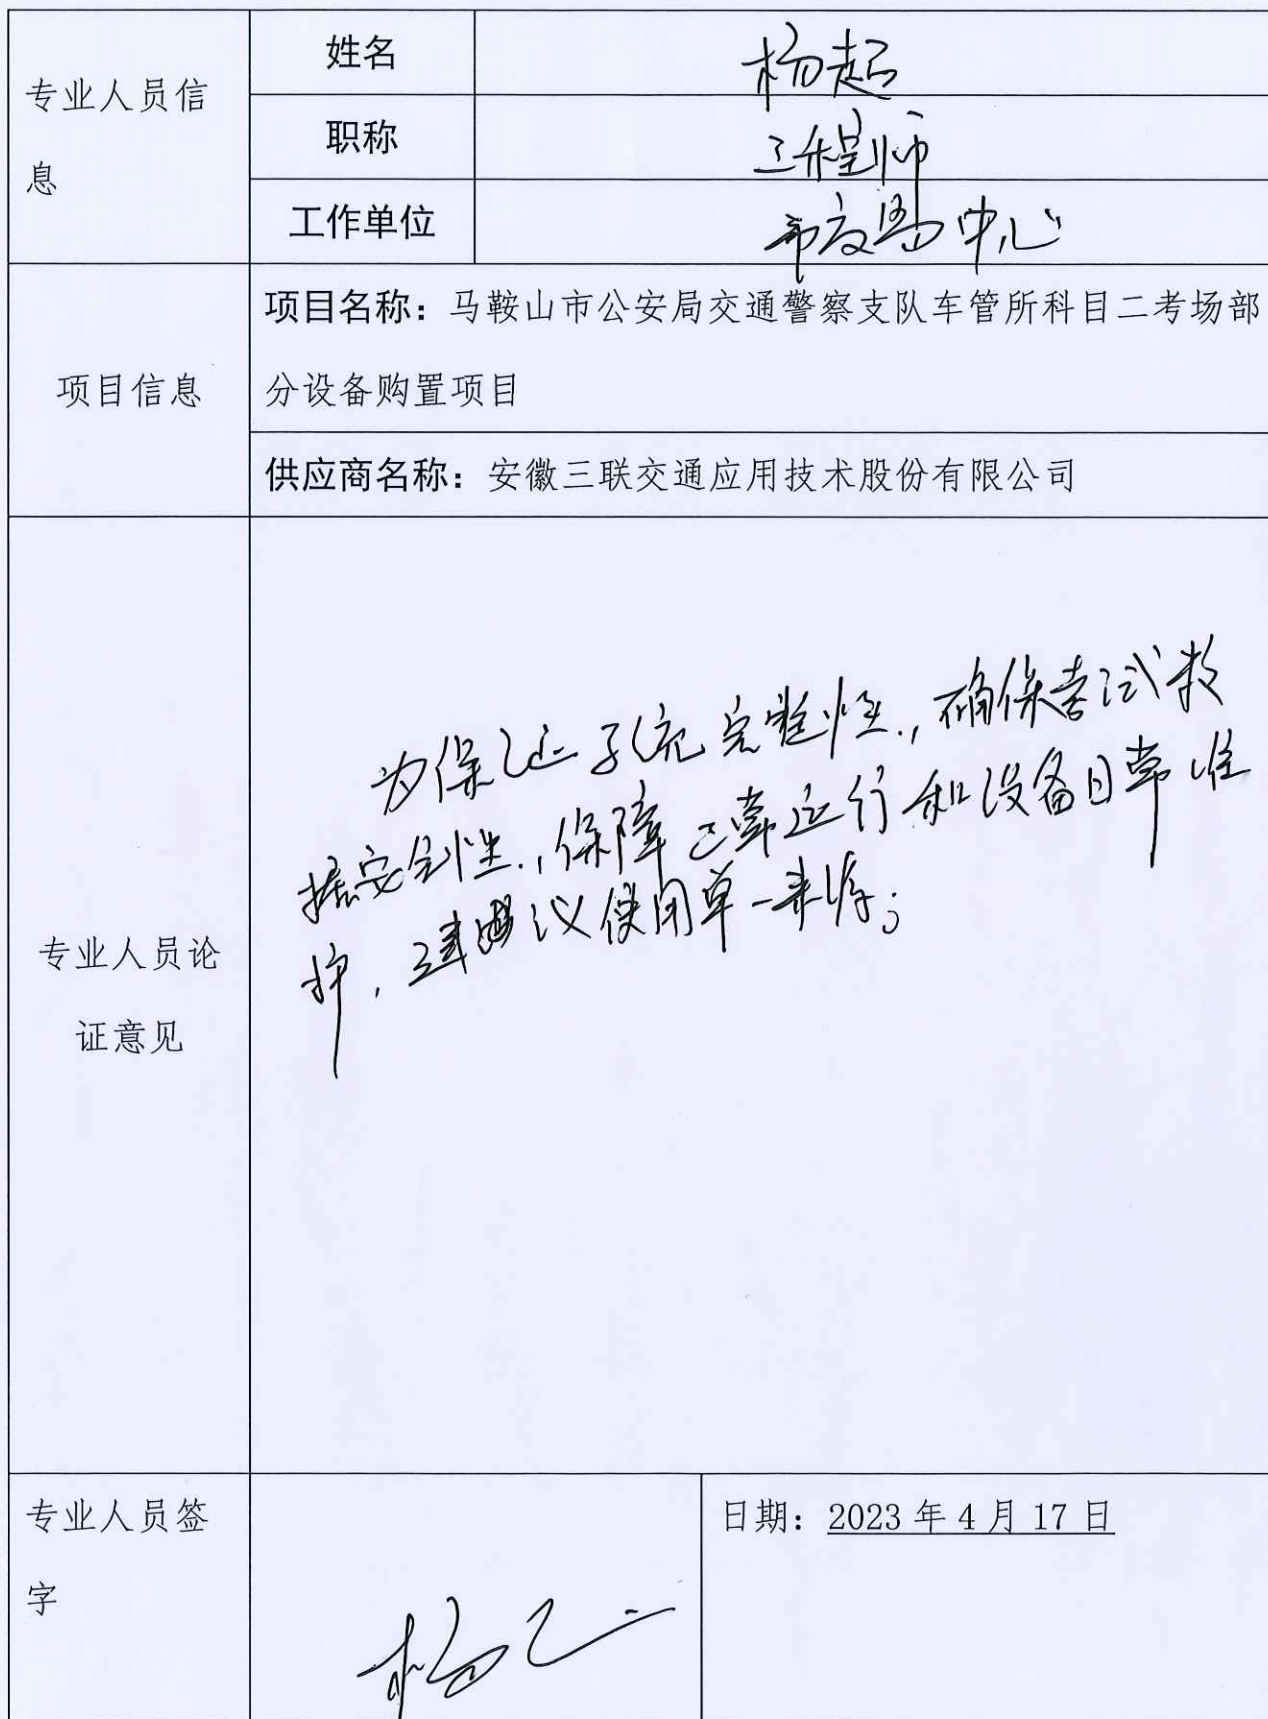 专业人员信
息
姓名
杨超
职称
工程师
工作单位
市交易中心
项目信息
项目名称：马鞍山市公安局交通警察支队车管所科目二考场部
分设备购置项目
供应商名称：安徽三联交通应用技术股份有限公司
专业人员论
证意见
为保证系统完整性，确保考试数
据安全性，保障正常运行和设备日常维
护，建议使用单一来源；
专业人员签
字
杨
日期：2023 年 4 月 17 日